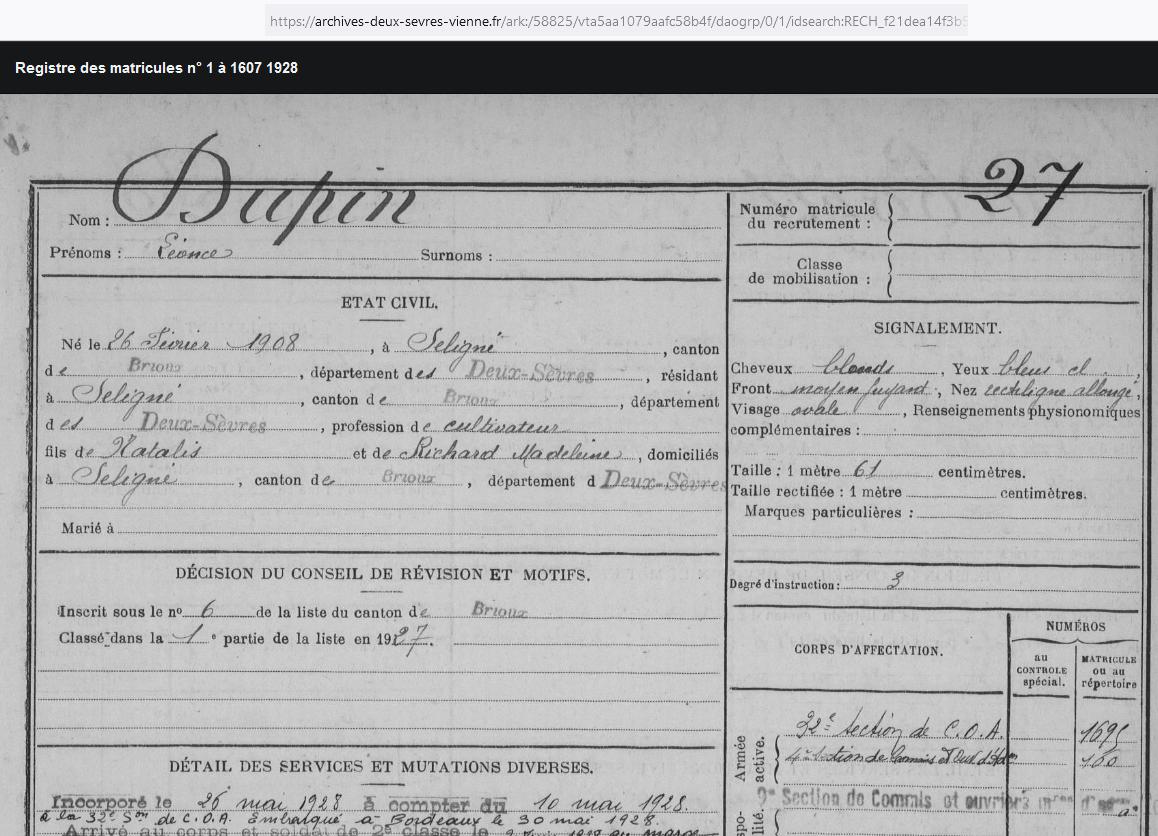 https://archives-deux-sevres-vienne.fr/ark:/58825/vta5aa1079aafc58b4f/daogrp/0/1/idsearch:RECH_f21dea14f3b5
Registre des matricules n° 1 à 1607 1928
Nom : Dupin
Prénoms : Léonce Surnoms :
ETAT CIVIL.
Né le 26 Février 1908, à Seligné, canton
de Brioux, département des Deux-Sèvres, résidant
à Seligné, canton de Brioux, département
des Deux-Sèvres, profession de cultivateur
fils de Natalis et de Richard Madeleine, domiciliés
à Seligné, canton de Brioux, département d Deux-Sèvres
Marié à
DÉCISION DU CONSEIL DE RÉVISION ET MOTIFS.
Inscrit sous le n° 6 de la liste du canton de Brioux
Classé dans la 1e partie de la liste en 1927.
DÉTAIL DES SERVICES ET MUTATIONS DIVERSES.
Incorporé le 26 mai 1928 à compter du 10 mai 1928.
à la 32e Son de C.O.A. Embarqué à Bordeaux le 30 mai 1928.
Arrivé au corps et soldat de 2e classe le
27
Numéro matricule
du recrutement :
Classe
de mobilisation :
SIGNALEMENT.
Cheveux blonds, Yeux bleus cl.,
Front moyen fuyant, Nez rectiligne allongé,
Visage ovale, Renseignements physionomiques
complémentaires :
Taille : 1 mètre 61 centimètres.
Taille rectifiée : 1 mètre centimètres.
Marques particulières :
Degré d'instruction : 3
CORPS D'AFFECTATION.
NUMÉROS
au
CONTROLE
spécial.
MATRICULE
ou au
répertoire
Armée
active.
32e Section de C.O.A. 1695
4e Section de Commis et Ouv. d'Adon 160
9e Section de Commis et ouvriers mres d'